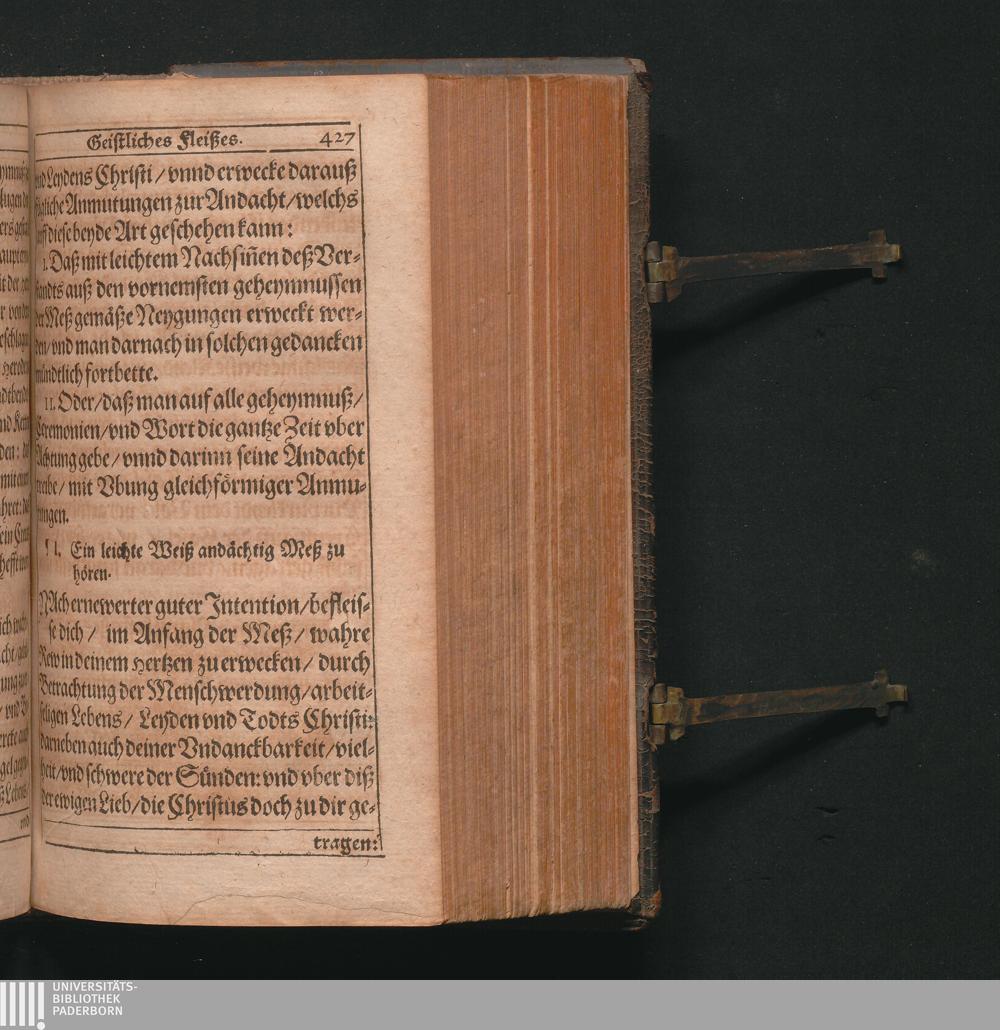 Geistliches Fleißes. 427
Leydens Christi / vnnd erwecke darauß
Anmutungen zur Andacht / welchs
diese beyde Art geschehen kann:
I. Daß mit leichtem Nachsiñen deß Ver-
auß den vornemsten geheymnussen
der Meß gemäße Neygungen erweckt wer-
den / vnd man darnach in solchen gedancken
mündtlich fortbette.
II. Oder / daß man auf alle geheymnuß /
Ceremonien / vnd Wort die gantze Zeit vber
Achtung gebe / vnnd darinn seine Andacht
mit Vbung gleichförmiger Anmu-
tungen.
¶ I. Ein leichte Weiß andächtig Meß zu
hören.
NAch ernewerter guter Intention / befleis-
se dich / im Anfang der Meß / wahre
Rew in deinem Hertzen zu erwecken / durch
Betrachtung der Menschwerdung / arbeit-
seligen Lebens / Leyden vnd Todts Christi:
darneben auch deiner Vndanckbarkeit / viel-
heit / vnd schwere der Sünden: vnd vber diß
der ewigen Lieb / die Christus doch zu dir ge-
tragen:
UNIVERSITÄTS-
BIBLIOTHEK
PADERBORN